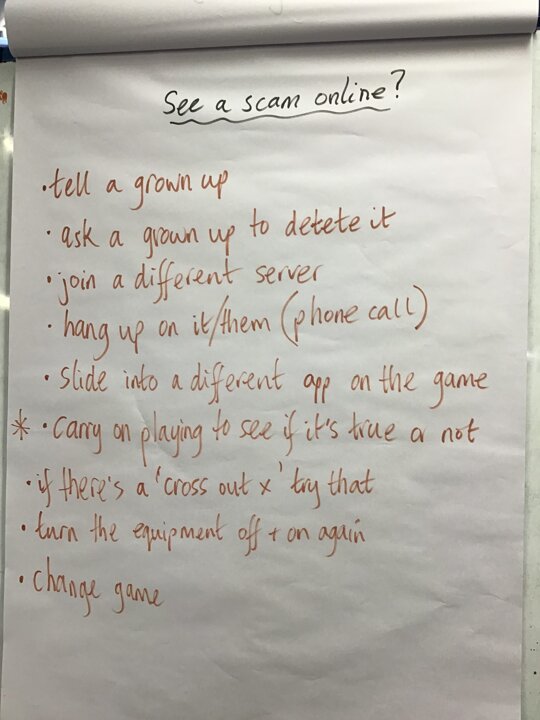 See a scam online?
• tell a grown up
• ask a grown up to detete it
• join a different server
• hang up on it/them (phone call)
• slide into a different app on the game
* • carry on playing to see if it's true or not
• if there's a 'cross out x' try that
• turn the equipment off + on again
• change game